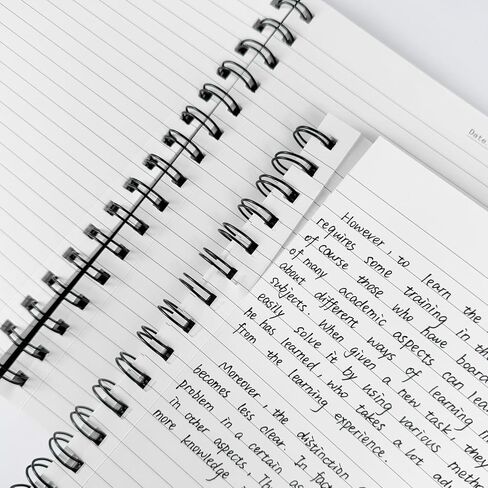 Date
However, to learn the
requires some training in th
of course those who have board
of many academic aspects can lea
about different ways of learning in
subjects. When given a new task, they
easily solve it by using various metho
he has learned, who takes a lot adv
from the learning experience.
Moreover, the disjunction
becomes less clear. In fact
problem in a certain as
in other aspects. Th
more knowledge